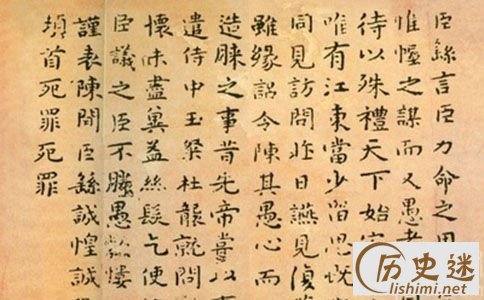 臣繇言臣力命之用
惟幄之謀而又愚耄
待以殊禮天下始定
唯有江東當少留思既
同見訪問昨日讌見復
雖緣詔令陳其愚心而
造膝之事昔先帝嘗以事
遣侍中王粲杜襲就問
懷未盡冀益絲髮乞使
臣議之臣不勝愚款慺
謹表陳聞臣繇誠惶誠
頓首死罪死罪
历史迷
lishimi.net